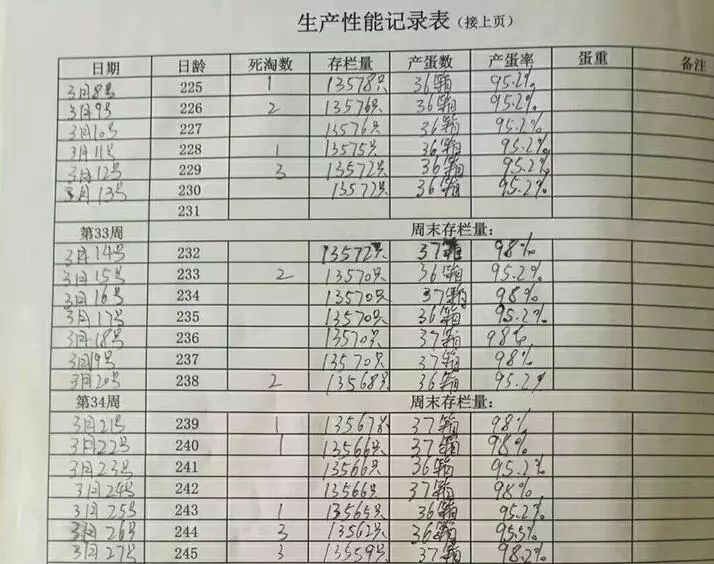 生产性能记录表(接上页)
日期 日龄 死淘数 存栏量 产蛋数 产蛋率 蛋重 备注
3月8号 225 1 13578只 36箱 95.2%
3月9号 226 2 13576只 36箱 95.2%
3月10号 227 13576只 36箱 95.2%
3月11号 228 1 13575只 36箱 95.2%
3月12号 229 3 13572只 36箱 95.2%
3月13号 230 13572只 36箱 95.2%
231
第33周 周末存栏量:
3月14号 232 13572只 37箱 98%
3月15号 233 2 13570只 36箱 95.2%
3月16号 234 13570只 37箱 98%
3月17号 235 13570只 36箱 95.2%
3月18号 236 13570只 37箱 98%
3月19号 237 13570只 37箱 98%
3月20号 238 2 13568只 36箱 95.2%
第34周 周末存栏量:
3月21号 239 1 13567只 37箱 98%
3月22号 240 1 13566只 37箱 98%
3月23号 241 13566只 36箱 95.2%
3月24号 242 13566只 37箱 98%
3月25号 243 1 13565只 36箱 95.2%
3月26号 244 3 13562只 36箱 95.5%
3月27号 245 3 13559只 37箱 98.2%